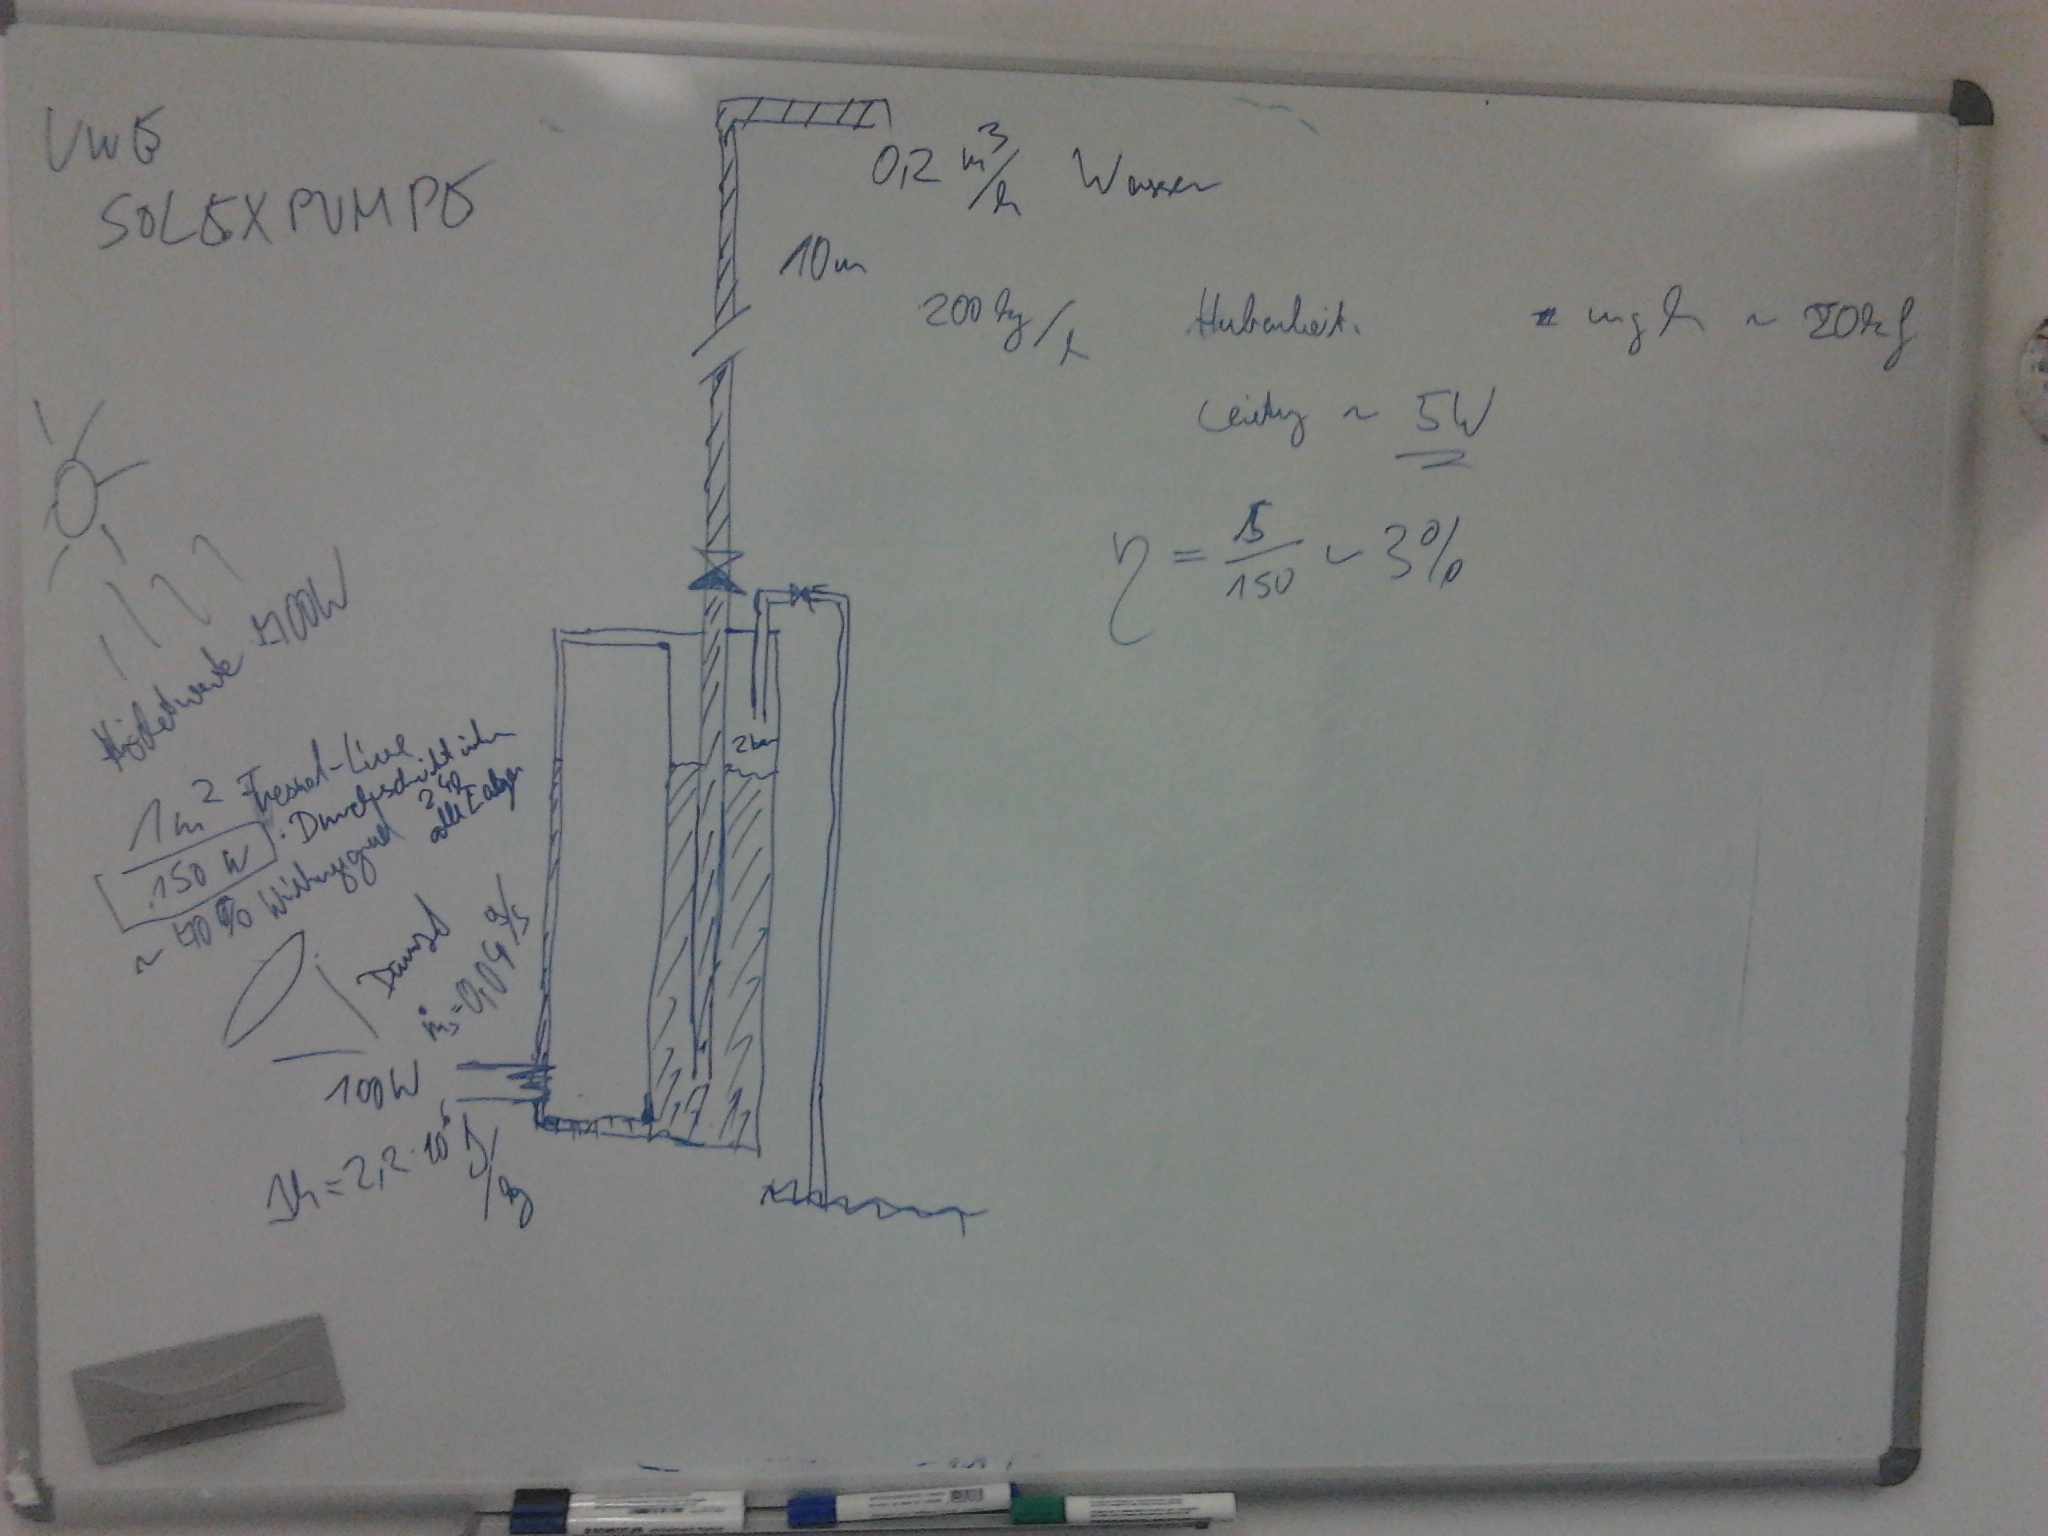 UWE
SOLEXPUMPE
0,2 m³/h Wasser
10m
200 kg/h Hubarbeit. = mgh ~ 20kJ
Leistung ~ 5W
η = 5/150 ~ 3%
700W
1m² Fresnel-Linse
150 W
: Durchschnitt über
24h
alle Tage
~ 70% Wirkungsgrad
Dampf
ṁ = 0,04 g/s
100W
Δh = 2,2·10⁶ J/kg
2 bar